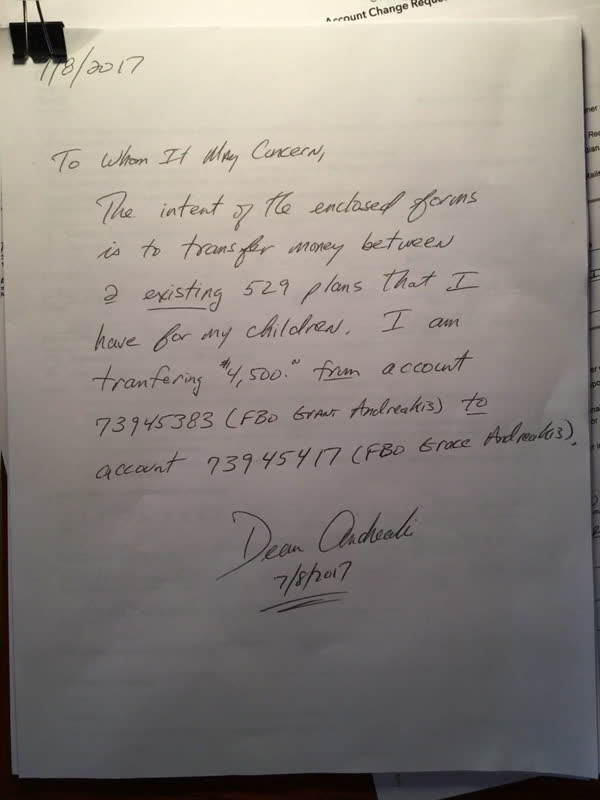 Account Change Reque
7/8/2017
To Whom It May Concern,
The intent of the enclosed forms
is to transfer money between
2 existing 529 plans that I
have for my children. I am
tranfering $4,500.00 from account
73945383 (FBO Grant Andreakis) to
account 73945417 (FBO Grace Andreakis).
Dean Andreaki
7/8/2017